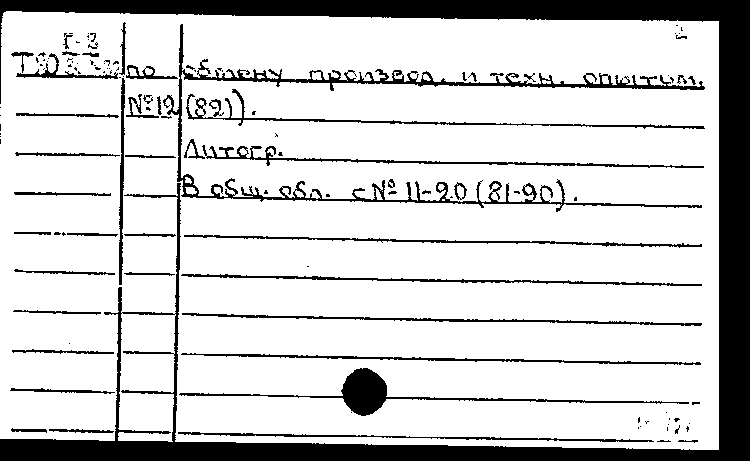 2
Г-8
по обмену производ. и техн. опытом.
№12 (82)).
Литогр.
В общ. обл. с № 11-20 (81-90).